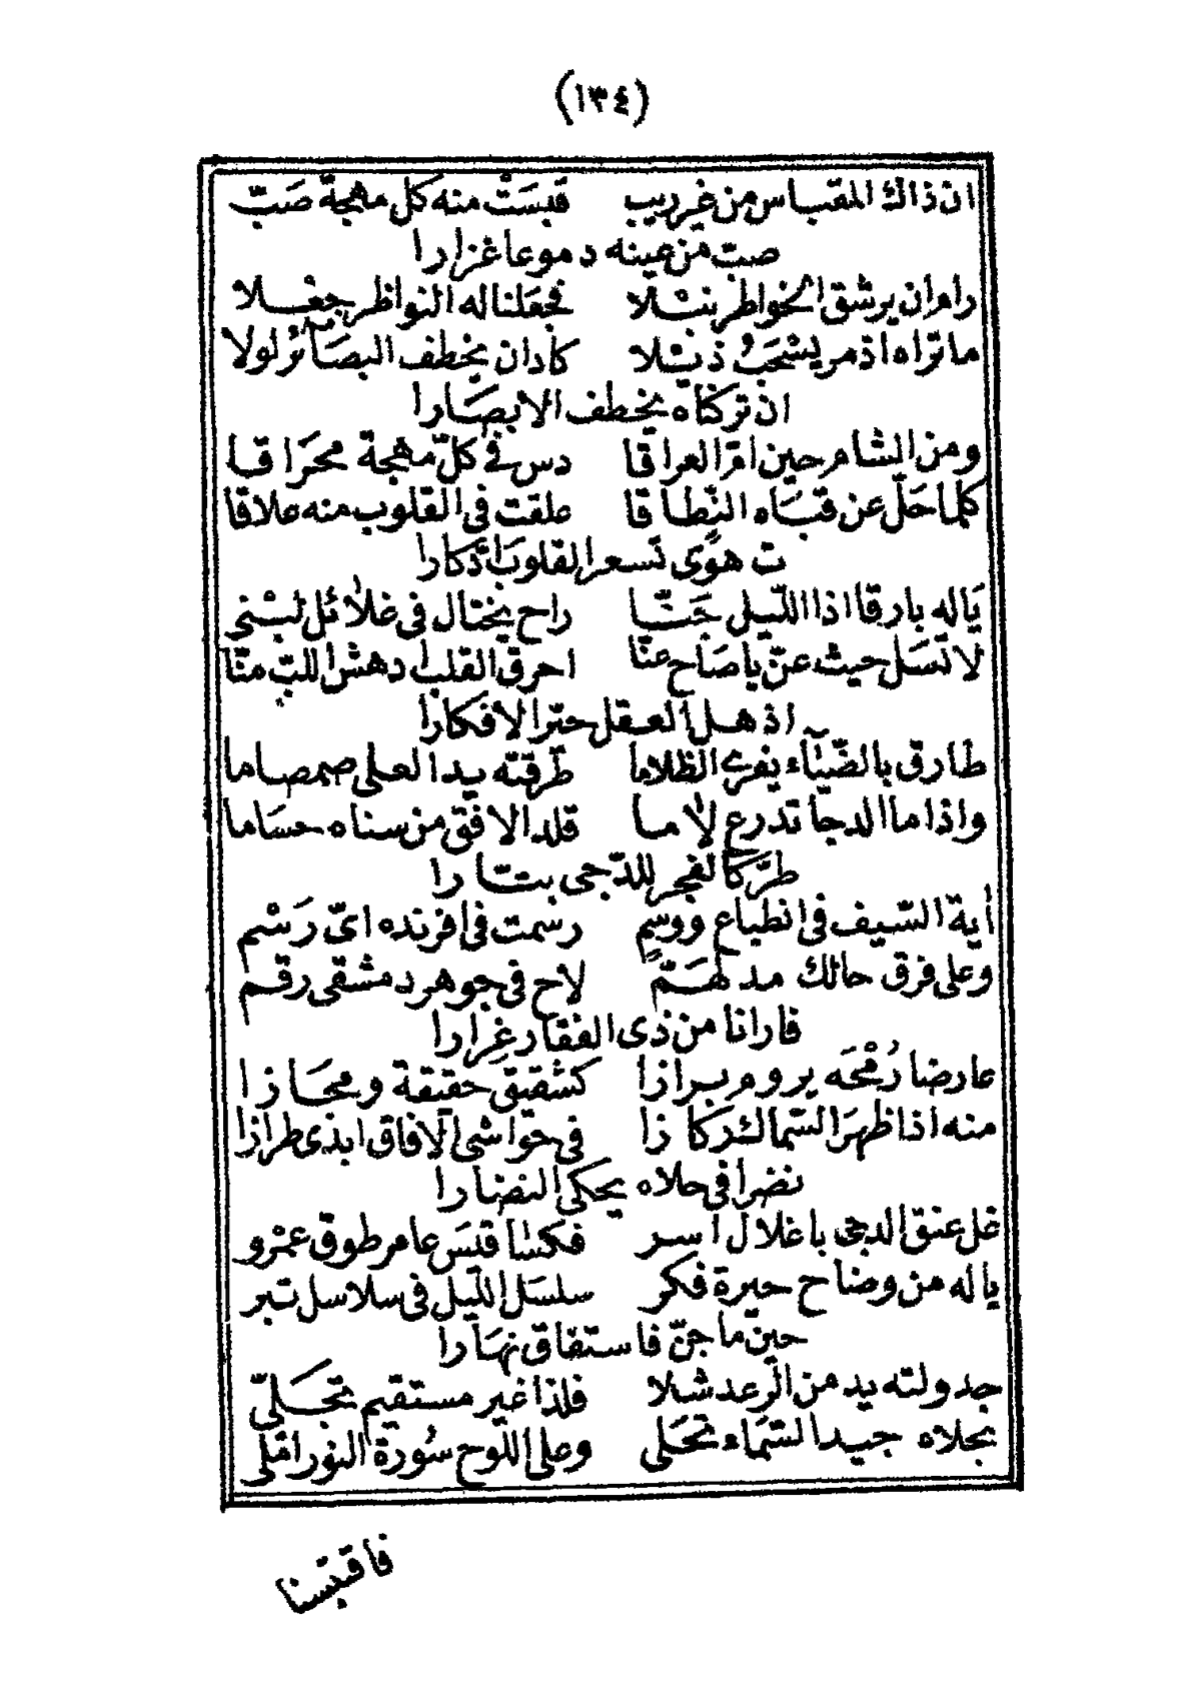 (١٣٤)
ان ذاك المقباس من غربيب قبست منه كل مهجة صب
صب من عينه دموعا غزارا
رام ان يرشق الخواطر نبلا فجعلنا له النواظر جعلا
ما تراه اذ مر يسحب ذيلا كاد ان يخطف البصائر لولا
ان تركناه يخطف الابصارا
ومن الشام حين ام العراقا دس في كل مهجة محراقا
كلما حل عن قباه النطاقا علقت في القلوب منه علاقا
ت هوى تسعر القلوب ادكارا
يا له بارقا اذا الليل جنا راح يختال في غلائل لبنى
لا تسل حيث عن يا صاح عنا احرق القلب ادهش اللب منا
اذهل العقل حير الافكارا
طارق بالضياء يفرى الظلاما طرقته يد العلى صمصاما
واذا ما الدجا تدرع لاما قلد الافق من سناه حساما
طر كالفجر للدجى بتارا
أية السيف في انطباع ووسم رسمت في افرنده اى رسم
وعلى فرق حالك مدلهم لاح في جوهر دمشقى رقم
فارانا من ذى الفقار غرارا
عارضا رمحه يروم برازا كشقيق حقيقة ومجازا
منه اذا ظهر السماك ركازا في حواشى الآفاق ابدى طرازا
نضرا في حلاه يحكى النضارا
غل عنق الدجى باغلال اسر فكسا قيس عامر طوق عمرو
يا له من وضاح حيرة فكر سلسل الليل في سلاسل تبر
حين ما جن فاستفاق نهارا
جدولته يد من الرعد شلا فلذا غير مستقيم تجلى
بحلاه جيد السماء تحلى وعلى اللوح سورة النور املى
فاقتبسنا